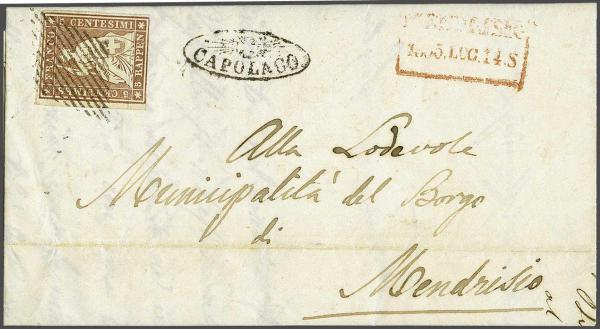 5 CENTESIMI
FRANCO
5 RAPPEN
CAPOLAGO
LUG. 14. S
Alla Lodevole
Municipalità del Borgo
di
Mendrisio